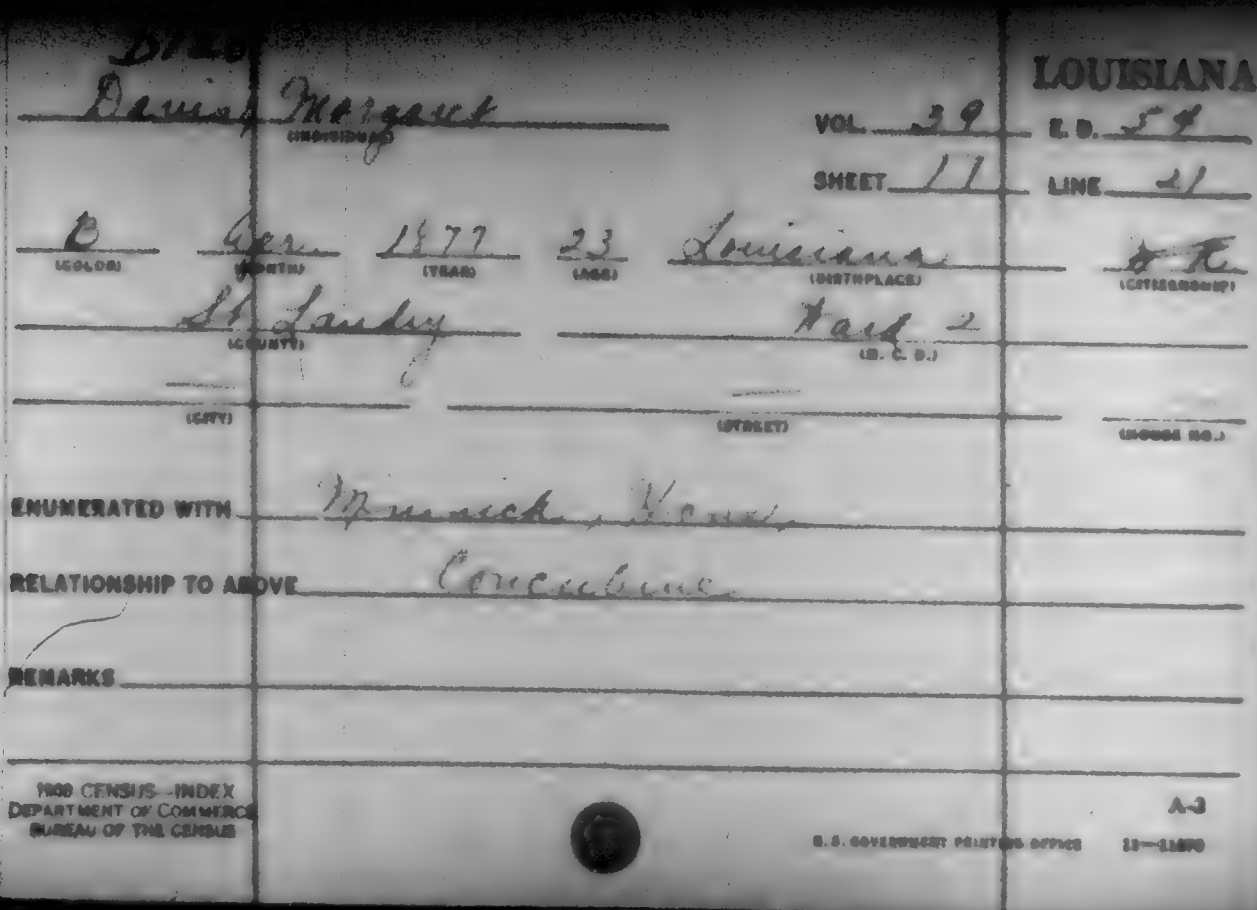 LOUISIANA
Davis, Margaret
(INDIVIDUAL)
VOL. 39 E. D. 54
SHEET 11 LINE 21
B 1877 23 Louisiana
(COLOR) (MONTH) (YEAR) (AGE) (BIRTHPLACE) (CITIZENSHIP)
St. Landry Ward 2
(COUNTY) (M. C. D.)
(CITY) (STREET) (HOUSE NO.)
ENUMERATED WITH
RELATIONSHIP TO ABOVE Concubine
REMARKS
1900 CENSUS—INDEX
DEPARTMENT OF COMMERCE
BUREAU OF THE CENSUS
A-3
U.S. GOVERNMENT PRINTING OFFICE